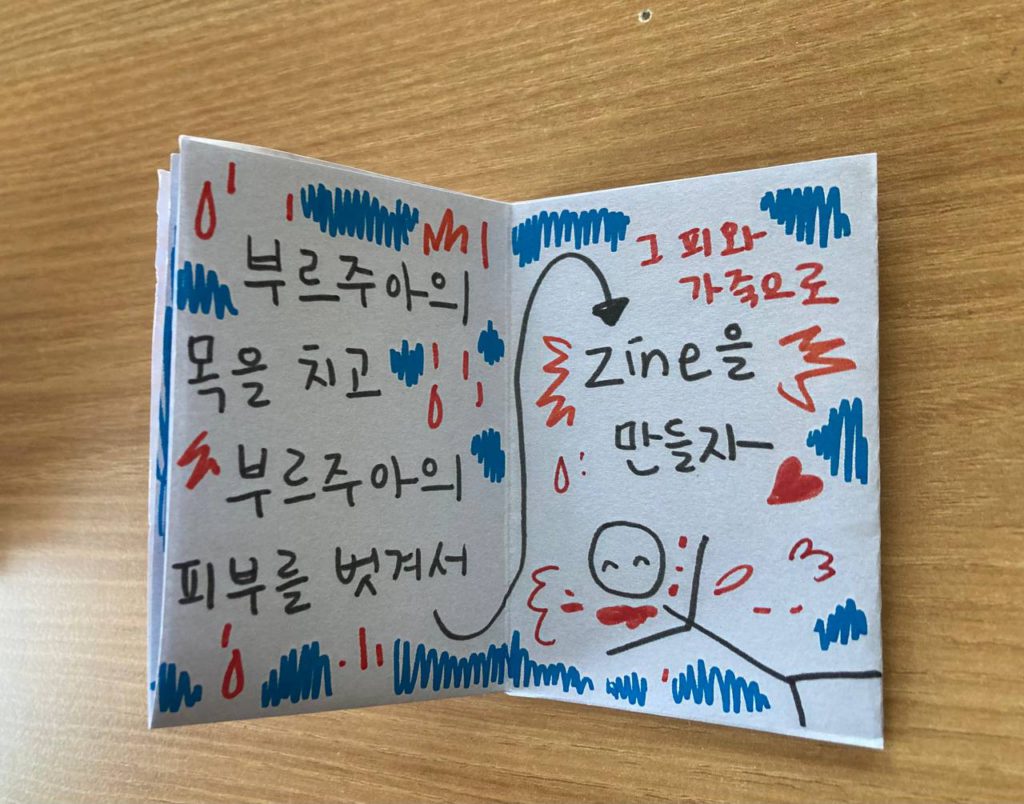 부르주아의
목을 치고
부르주아의
피부를 벗겨서
그 피와
가죽으로
zine을
만들자